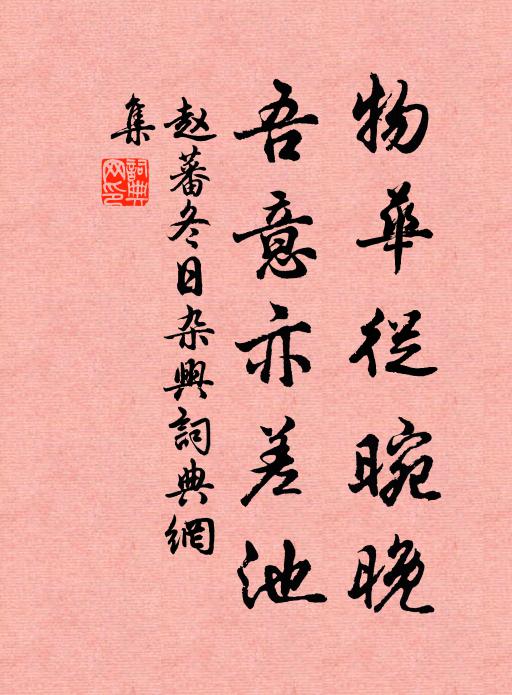 物華從晼晚
吾意亦差池
赵蕃冬日杂興詞典網
集
詞典網印